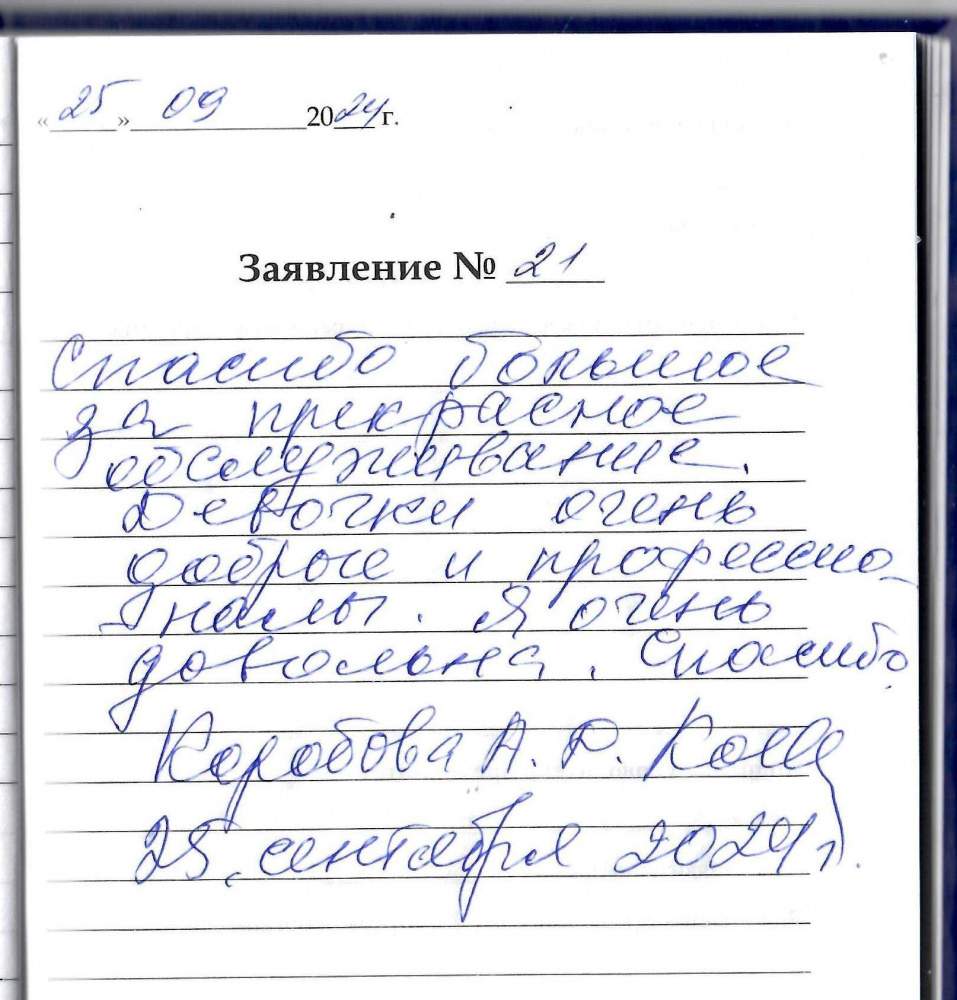 «25» 09 2024 г.
Заявление № 21
Спасибо большое
за прекрасное
обслуживание.
Девочки очень
добрые и профессио-
налы. Я очень
довольна. Спасибо
Коробова А. Р.
25 сентября 2024 г.